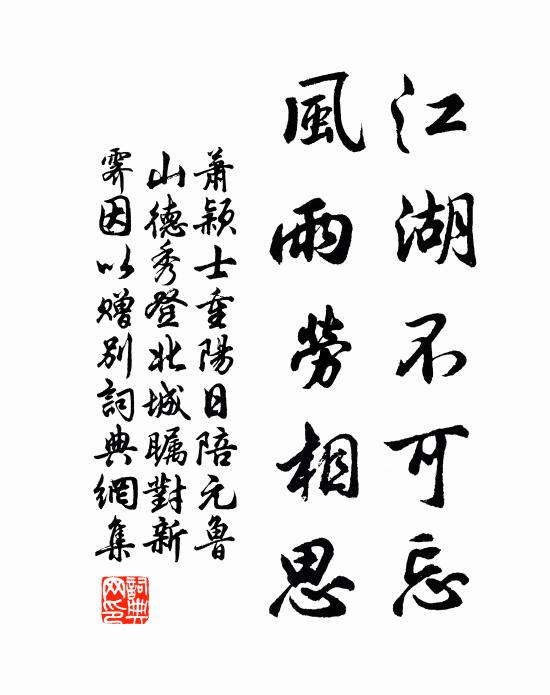 江湖不可忘
風雨勞相思
蕭穎士重陽日陪元魯
山德秀登北城矚對新
霽因以贈別詞典網集
詞典
网印